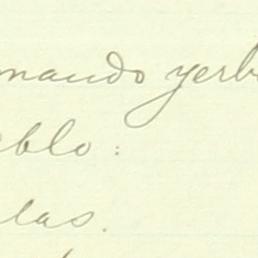 mando yerb
eblo :
las.